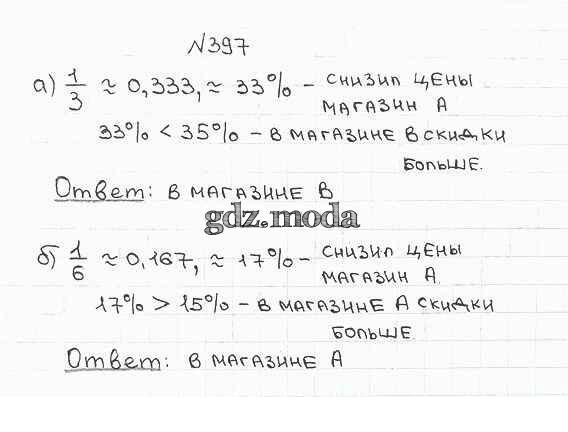 №397
а) 1/3 ≈ 0,333, ≈ 33% – снизил цены
магазин А
33% < 35% – в магазине В скидки
больше.
Ответ: в магазине В
gdz.moda
б) 1/6 ≈ 0,167, ≈ 17% – снизил цены
магазин А
17% > 15% – в магазине А скидки
больше
Ответ: в магазине А